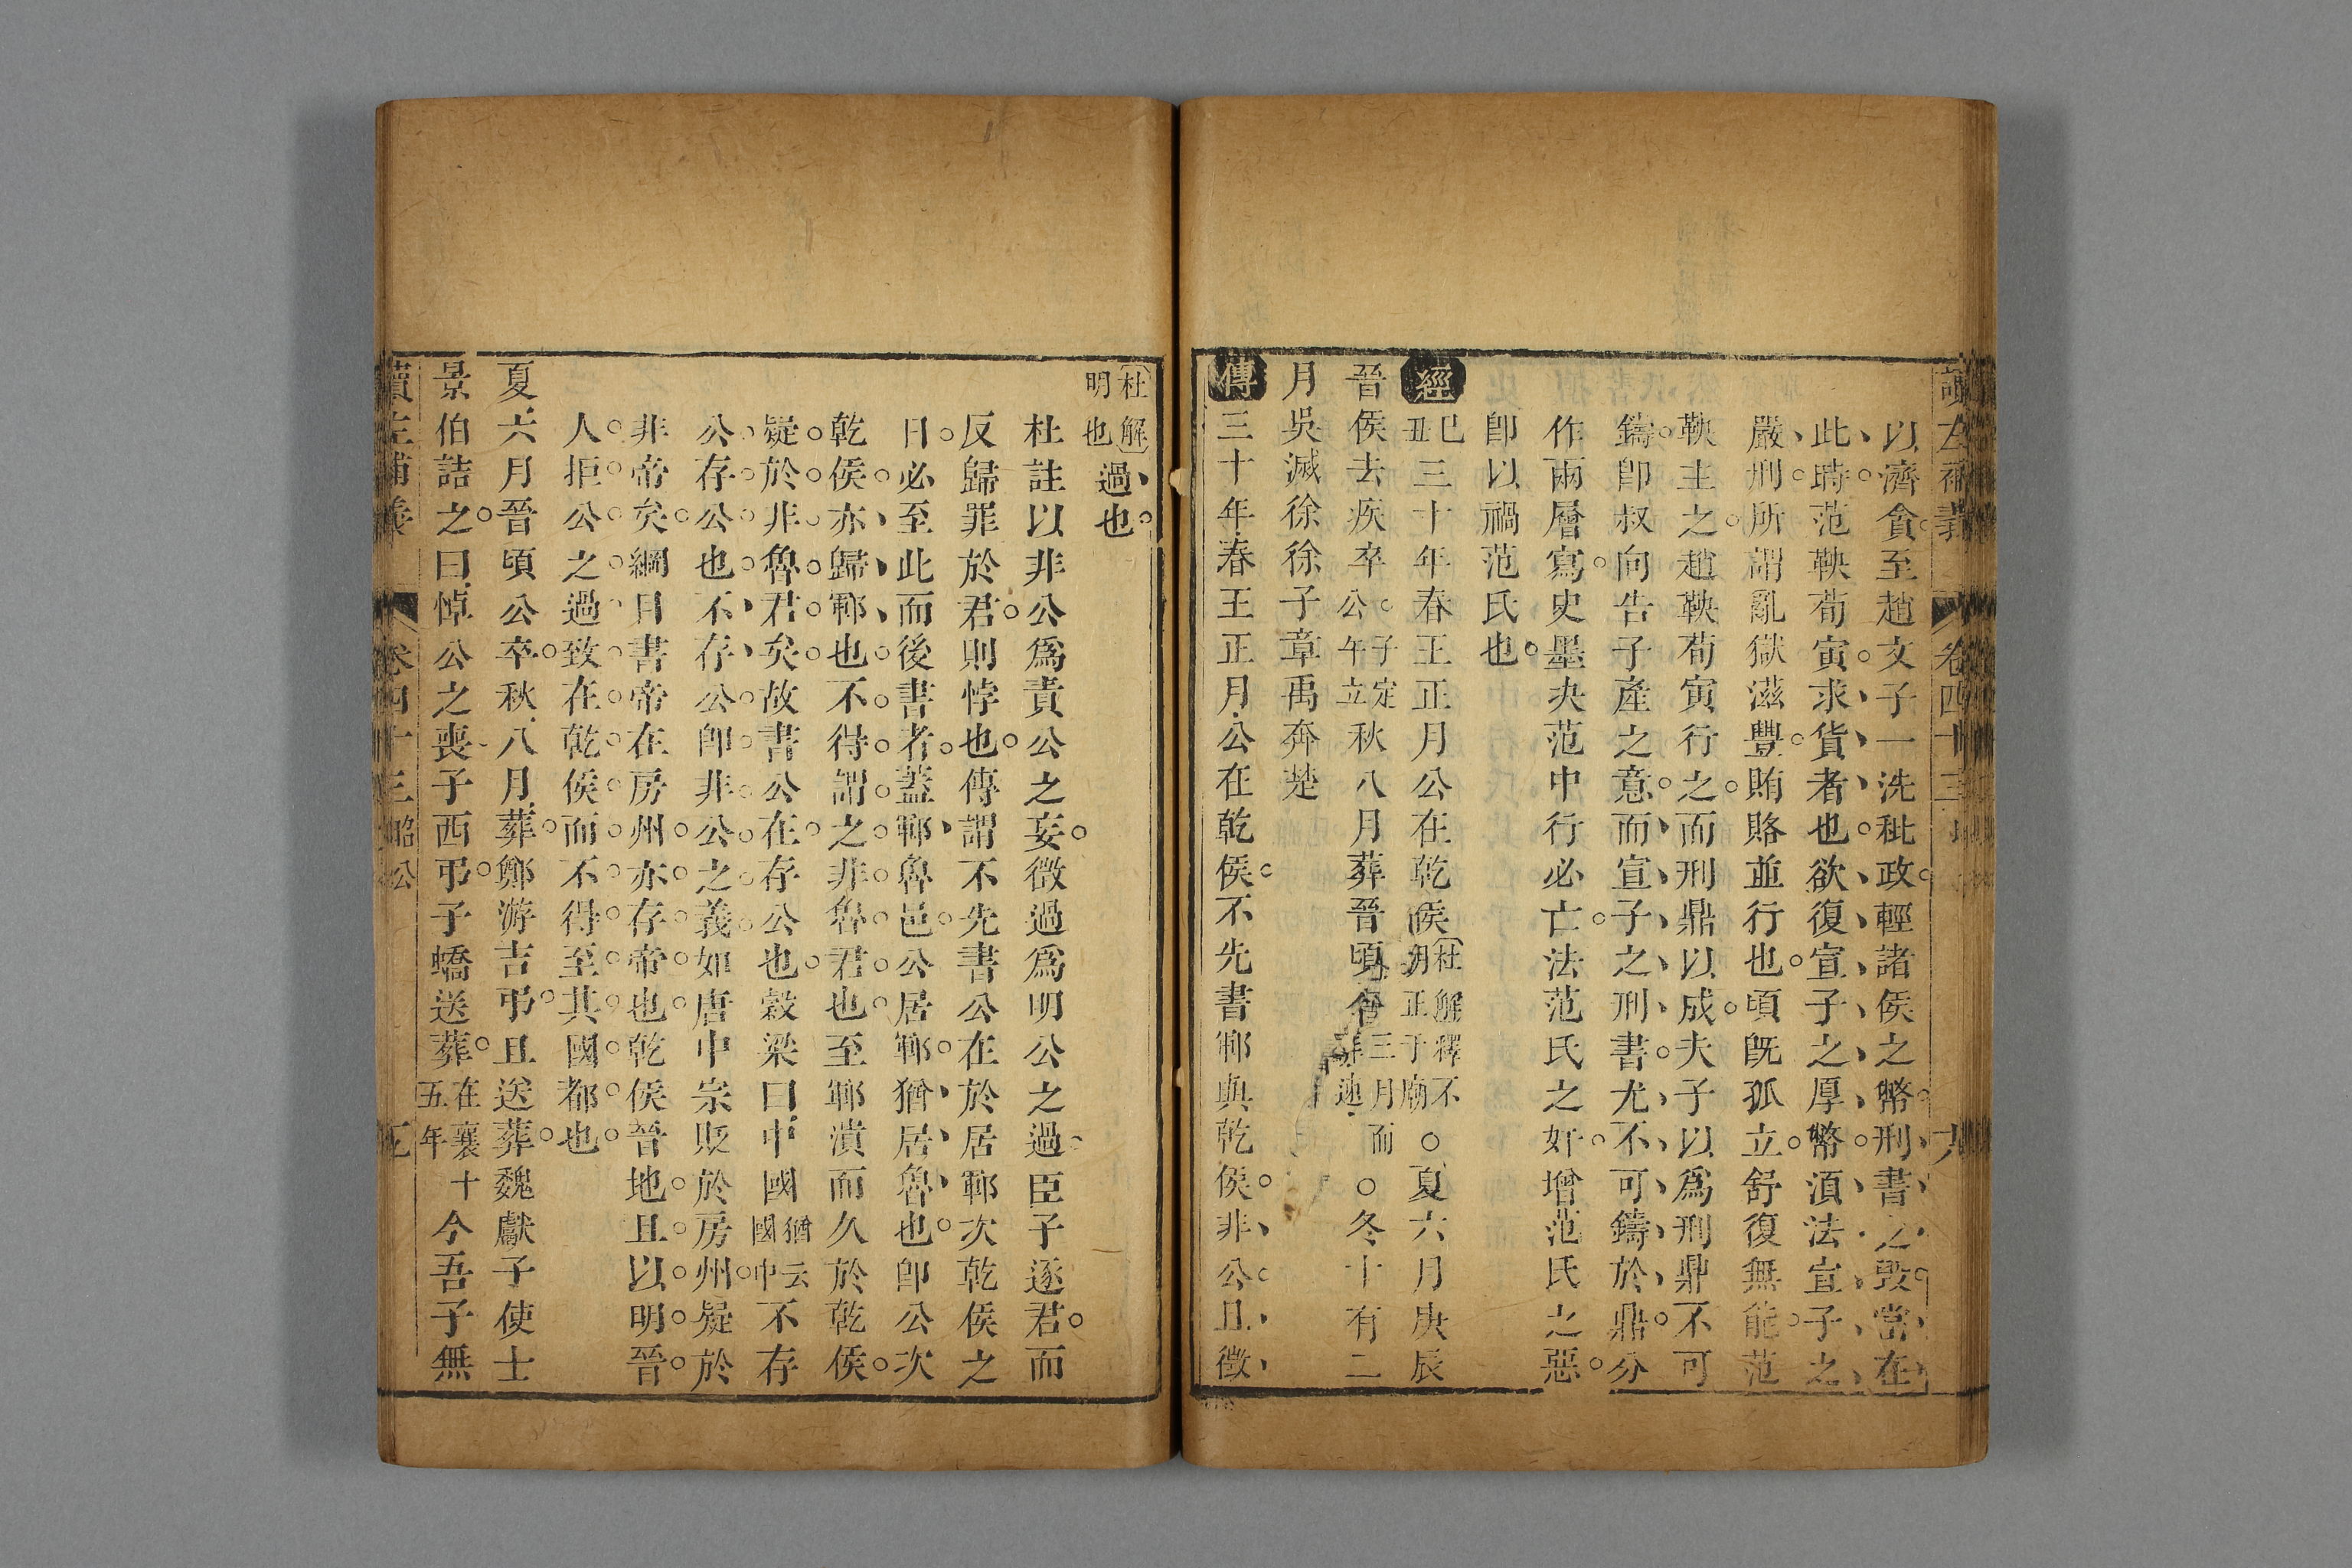 讀左補義　卷四十三　十八
以濟貪至趙文子一洗秕政輕諸侯之幣刑書之毁當在
此時范鞅荀寅求貨者也欲復宣子之厚幣須法宣子之
嚴刑所謂亂獄滋豐賄賂並行也頃旣孤立舒復無能范
鞅主之趙鞅荀寅行之而刑鼎以成夫子以爲刑鼎不可
鑄卽叔向告子產之意而宣子之刑書尤不可鑄於鼎分
作兩層寫史墨夬范中行必亡法范氏之奸增范氏之惡
卽以禍范氏也
經己丑三十年春王正月公在乾侯杜解釋不朝正于廟○夏六月庚辰
晉侯去疾卒公子定午立秋八月葬晉頃公三月而葬速○冬十有二
月吳滅徐徐子章禹奔楚
傳三十年春王正月公在乾侯不先書鄆與乾侯非公且徵
過也杜解明也
杜註以非公爲責公之妄徵過爲明公之過臣子逐君而
反歸罪於君則悖也傳謂不先書公在於居鄆次乾侯之
日必至此而後書者蓋鄆魯邑公居鄆猶居魯也卽公次
乾侯亦歸鄆也不得謂之非魯君也至鄆潰而久於乾侯
疑於非魯君矣故書公在存公也穀梁曰中國猶云國中不存
公存公也不存公卽非公之義如唐中宗貶於房州疑於
非帝矣綱目書帝在房州亦存帝也乾侯晉地且以明晉
人拒公之過致在乾侯而不得至其國都也
夏六月晉頃公卒秋八月葬鄭游吉弔且送葬魏獻子使士
景伯詰之曰悼公之喪子西弔子蟜送葬在襄十五年今吾子無
讀左補義　卷四十三昭公